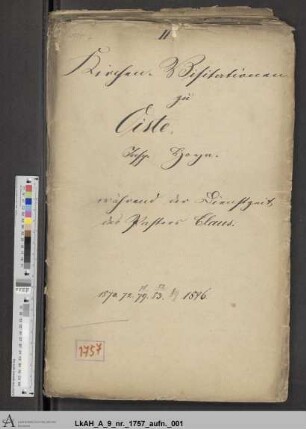 II
Kirchen-Visitationen
zu
Eiste,
Insp. Hoya.
während der Dienstzeit
des Pastors Claus.
1846.
1757
LkAH_A_9_nr._1757_aufn._001